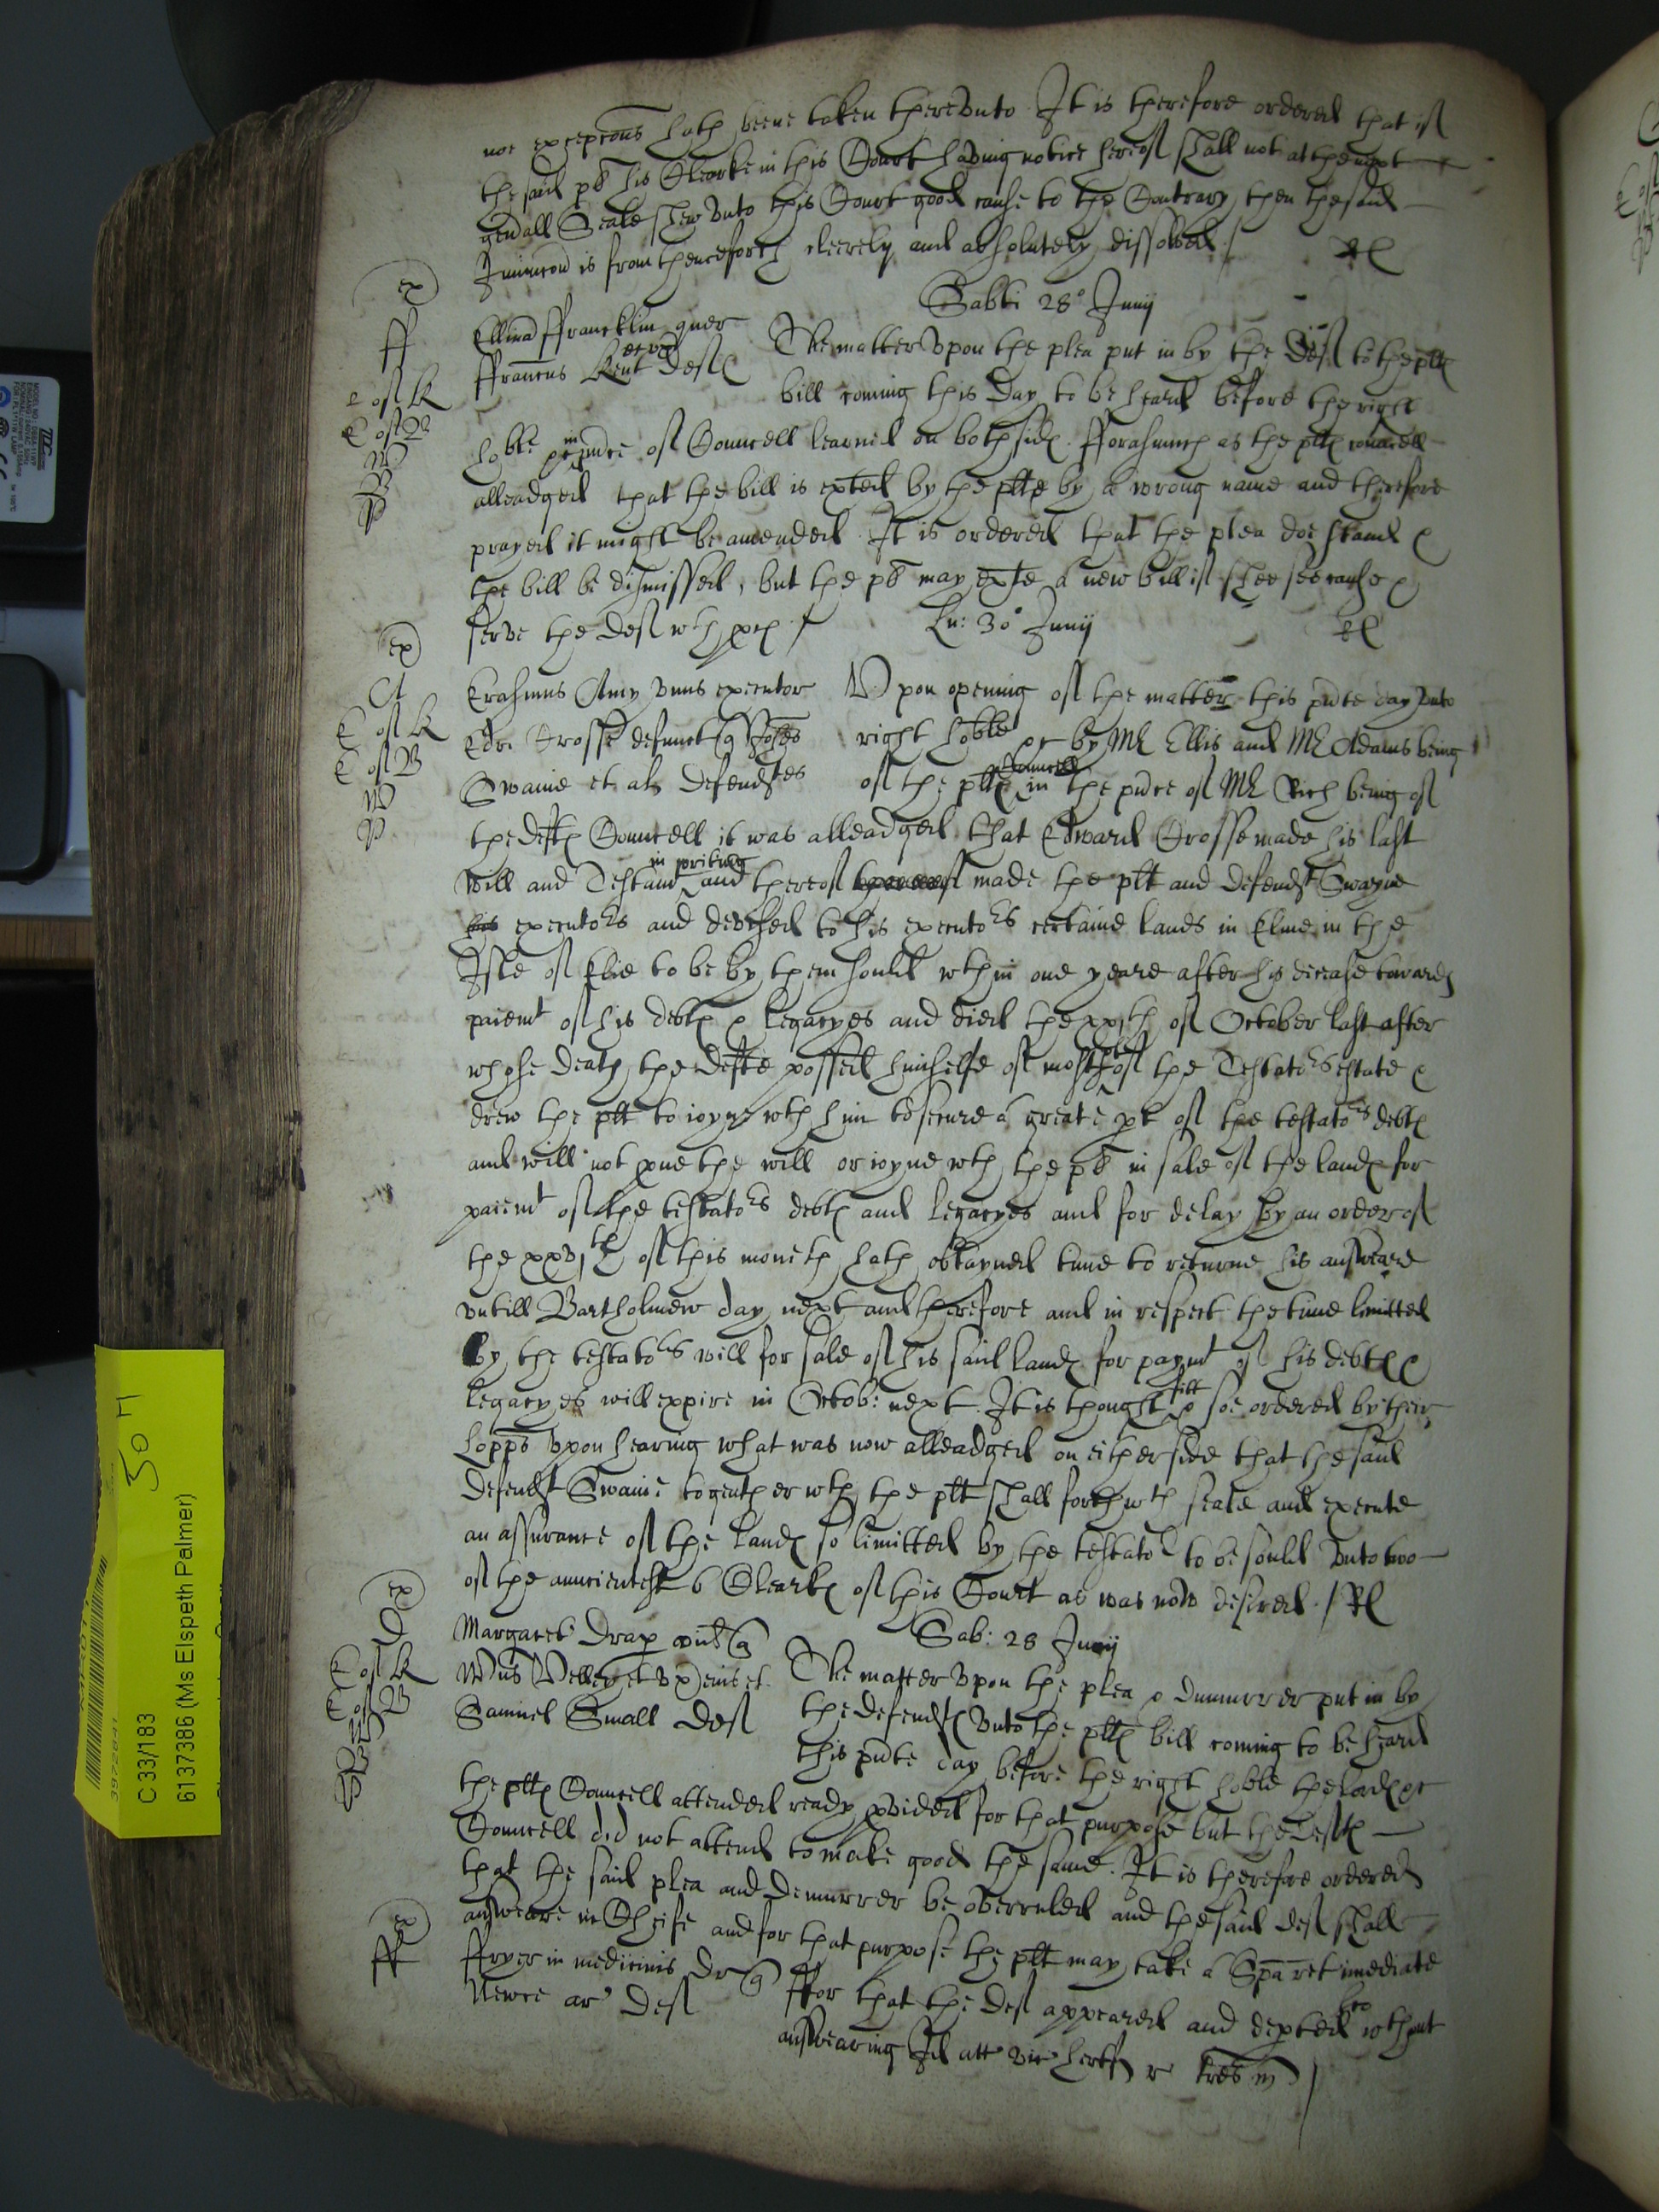 noe excepcons hath beene taken therevnto It is therefore ordered that if
the said pt his Clearke in this Court having notice hereof shall not at the next
gen'all Seale shew vnto this Court good cause to the Contrary then the said
Iniuncon is from thenceforth cleerely and absolutely dissolved /
Sabbti 28° Junij
ex
ff
E of K
E of B
W
P
Ellina ffrancklin quer
ffrancus Kent et vx Def
The matter vpon the plea put in by the Def to the plts
bill coming this day to be heard before the right
hoble in pnce of Councell learned on both sides fforasmuch as the plts councell
alleadged that the bill is exted by the plte by a wrong name and therefore
prayed it might be amended It is ordered that the plea doe stand &
the bill be dismissed, but the pt may exte a new bill if shee see cause &
serve the Def wth pces /
Lu: 30° Junij
ex
A
E of K
E of B
W
P
Erasmus Amy vnus executor
Edri Crosse defunct q Johes
Swaine et als Defendtes
Vpon opening of the matter this pnte day vnto
right hoble &c by Mr Ellis and Mr Adams being
of the plts Councell in the pnce of Mr Rich being of
the defts Councell it was alleadged that Edward Crosse made his last
Will and Testamt in writing and thereof made the plt and defendt Swayne
his executors and devised to his executors certaine lands in Elme in the
Isle of Elie to be by them sould wthin one yeare after his decease towards
paiemt of his debts & legacyes and died the xxth of October last after
whose death the defte possed himselfe of most of the Testators estate &
drew the plt to ioyne wth him to secure a greate pt of the testators debts
and will not prve the will or ioyne wth the pt in sale of the lands for
paiemt of the testators debts and legacyes and for delay by an order of
the xxvjth of this moneth hath obtayned time to returne his answeare
vntill Bartholmew day next and therefore and in respect the time limitted
by the testators will for sale of his said lands for paymt of his debts &
legacyes will expire in Octob: next. It is thought fitt & soe ordered by their
Lopps vpon hearing what was now alleadged on either side that the said
defendt Swaine togeather wth the plt shall forthwth seale and execute
an assurance of the lands so limitted by the testator to be sould vnto two
of the auncientest 6 Clearks of this Court as was now desired /
Sab: 28 Junij
ex
D
E of K
E of B
Margaret Drap vid q
Wms Velley et vx eius et
Samuel Small Def
The matter vpon the plea & dumurrer put in by
the defendts vnto the plts bill coming to be heard
this pnte day before the right hoble the lords &c
the plts Councell attended ready pvided for that purpose but the Defts
Councell did not attend to make good the same. It is therefore ordered
that the said plea and Demurrer be overruled and the said Def shall
answeare in Cheife and for that purpose the plt may take a Spa ret imediate
ex
ff
ffryer in medicinis Dr q
Newce ar' Def
ffor that the Def appeared and depted wthout
answearing Id att vic hertf r
C 33/183
6137386 (Ms Elspeth Palmer)